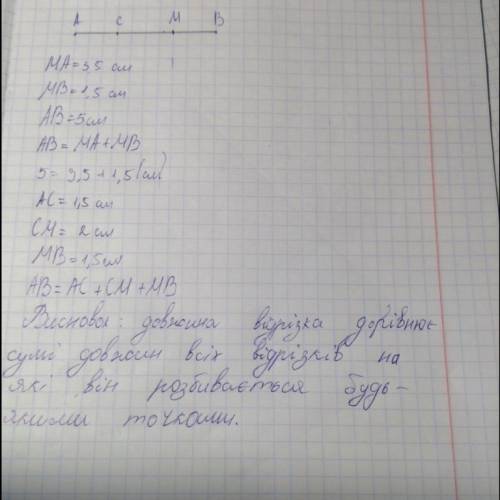 A C M B
MA = 3,5 см
MB = 1,5 см
AB = 5 см
AB = MA + MB
5 = 3,5 + 1,5 (см)
AC = 1,5 см
CM = 2 см
MB = 1,5 см
AB = AC + CM + MB
Висновок: довжина відрізка дорівнює
сумі довжин всіх відрізків на
які він розбивається будь-
якими точками.